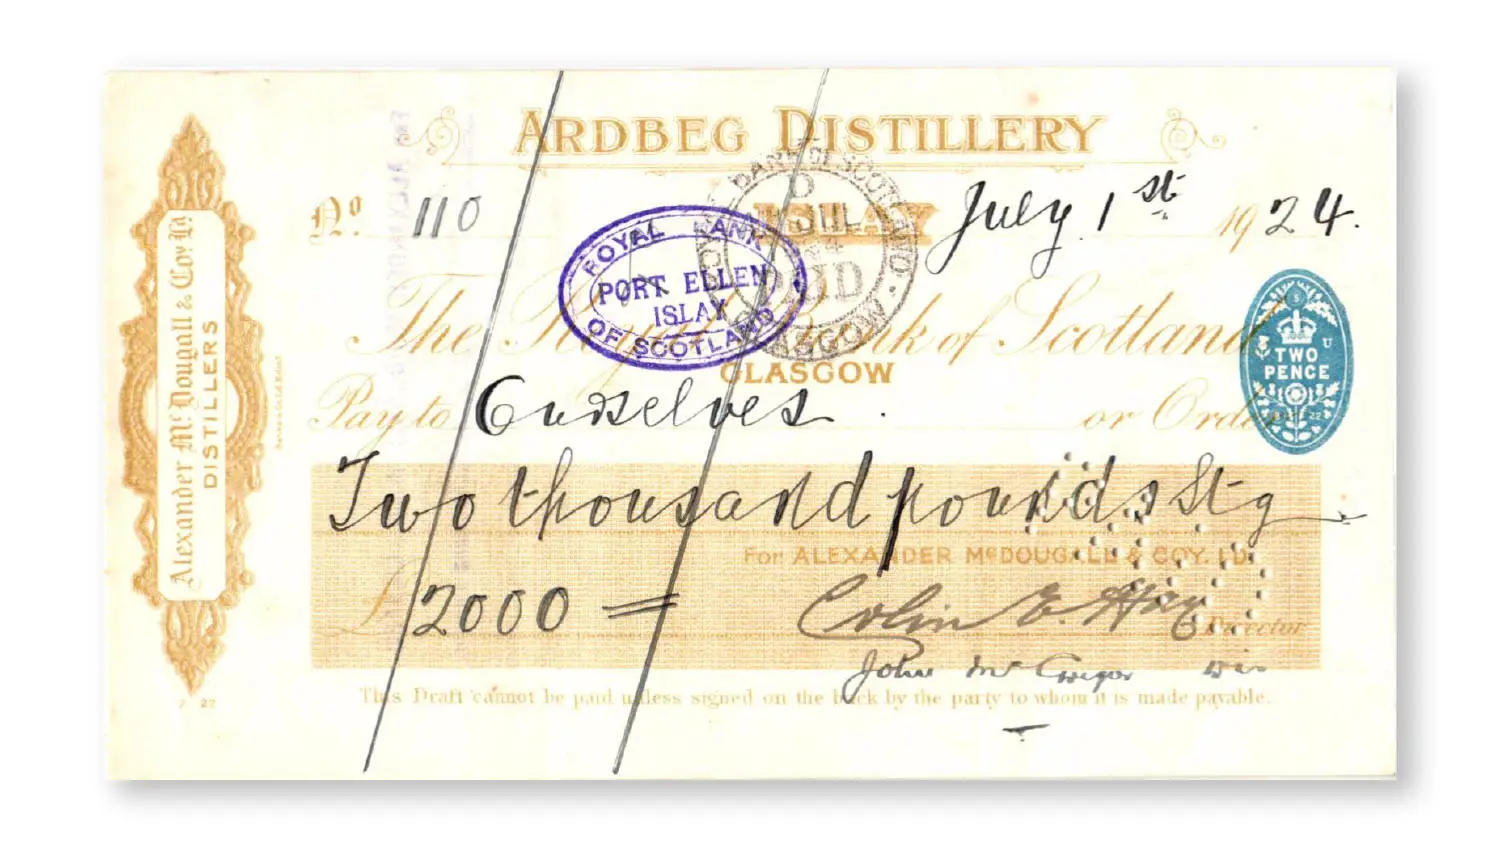 ARDBEG DISTILLERY
Nº 110
ISLAY
July 1st 1924.
ROYAL BANK
PORT ELLEN
ISLAY
OF SCOTLAND
The Royal Bank of Scotland
GLASGOW
TWO
PENCE
Pay to Ourselves or Order
Two thousand pounds Stg
For ALEXANDER McDOUGALL & COY. LD.
£2000 =
Colin E. Hay
Director
John McGregor
This Draft cannot be paid unless signed on the back by the party to whom it is made payable.
Alexander McDougall & Coy Ld
DISTILLERS